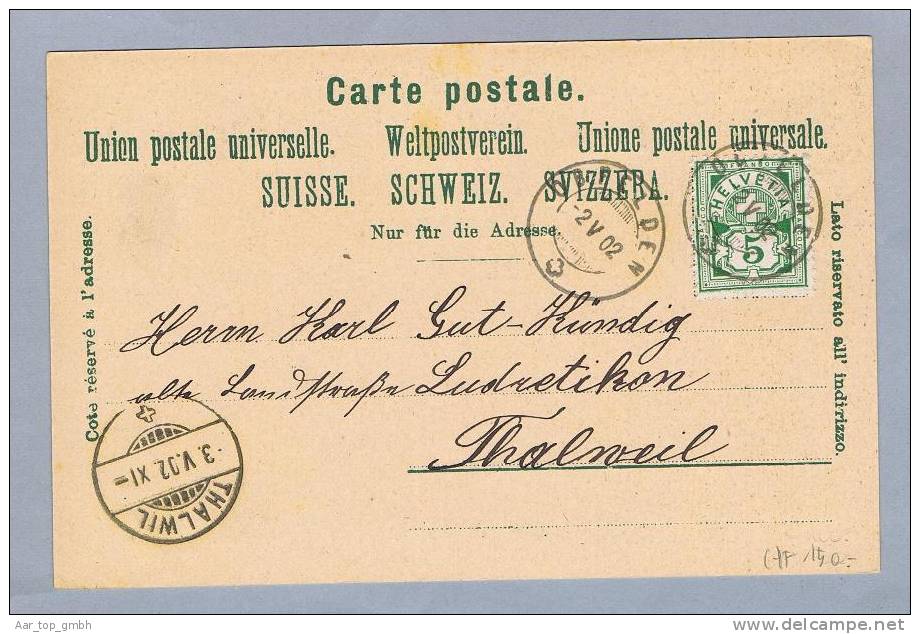 Carte postale.
Union postale universelle. Weltpostverein. Unione postale universale.
SUISSE. SCHWEIZ. SVIZZERA.
Nur für die Adresse.
Coté réservé à l'adresse.
Lato riservato all' indirizzo.
-2 V 02
HELVETIA
5
Herrn Karl Gut-Kündig
alte Landstraße Ludretikon
Thalweil
3. V. 02 XI
THALWIL
150.-
Aar_top_gmbh
www.delcampe.net